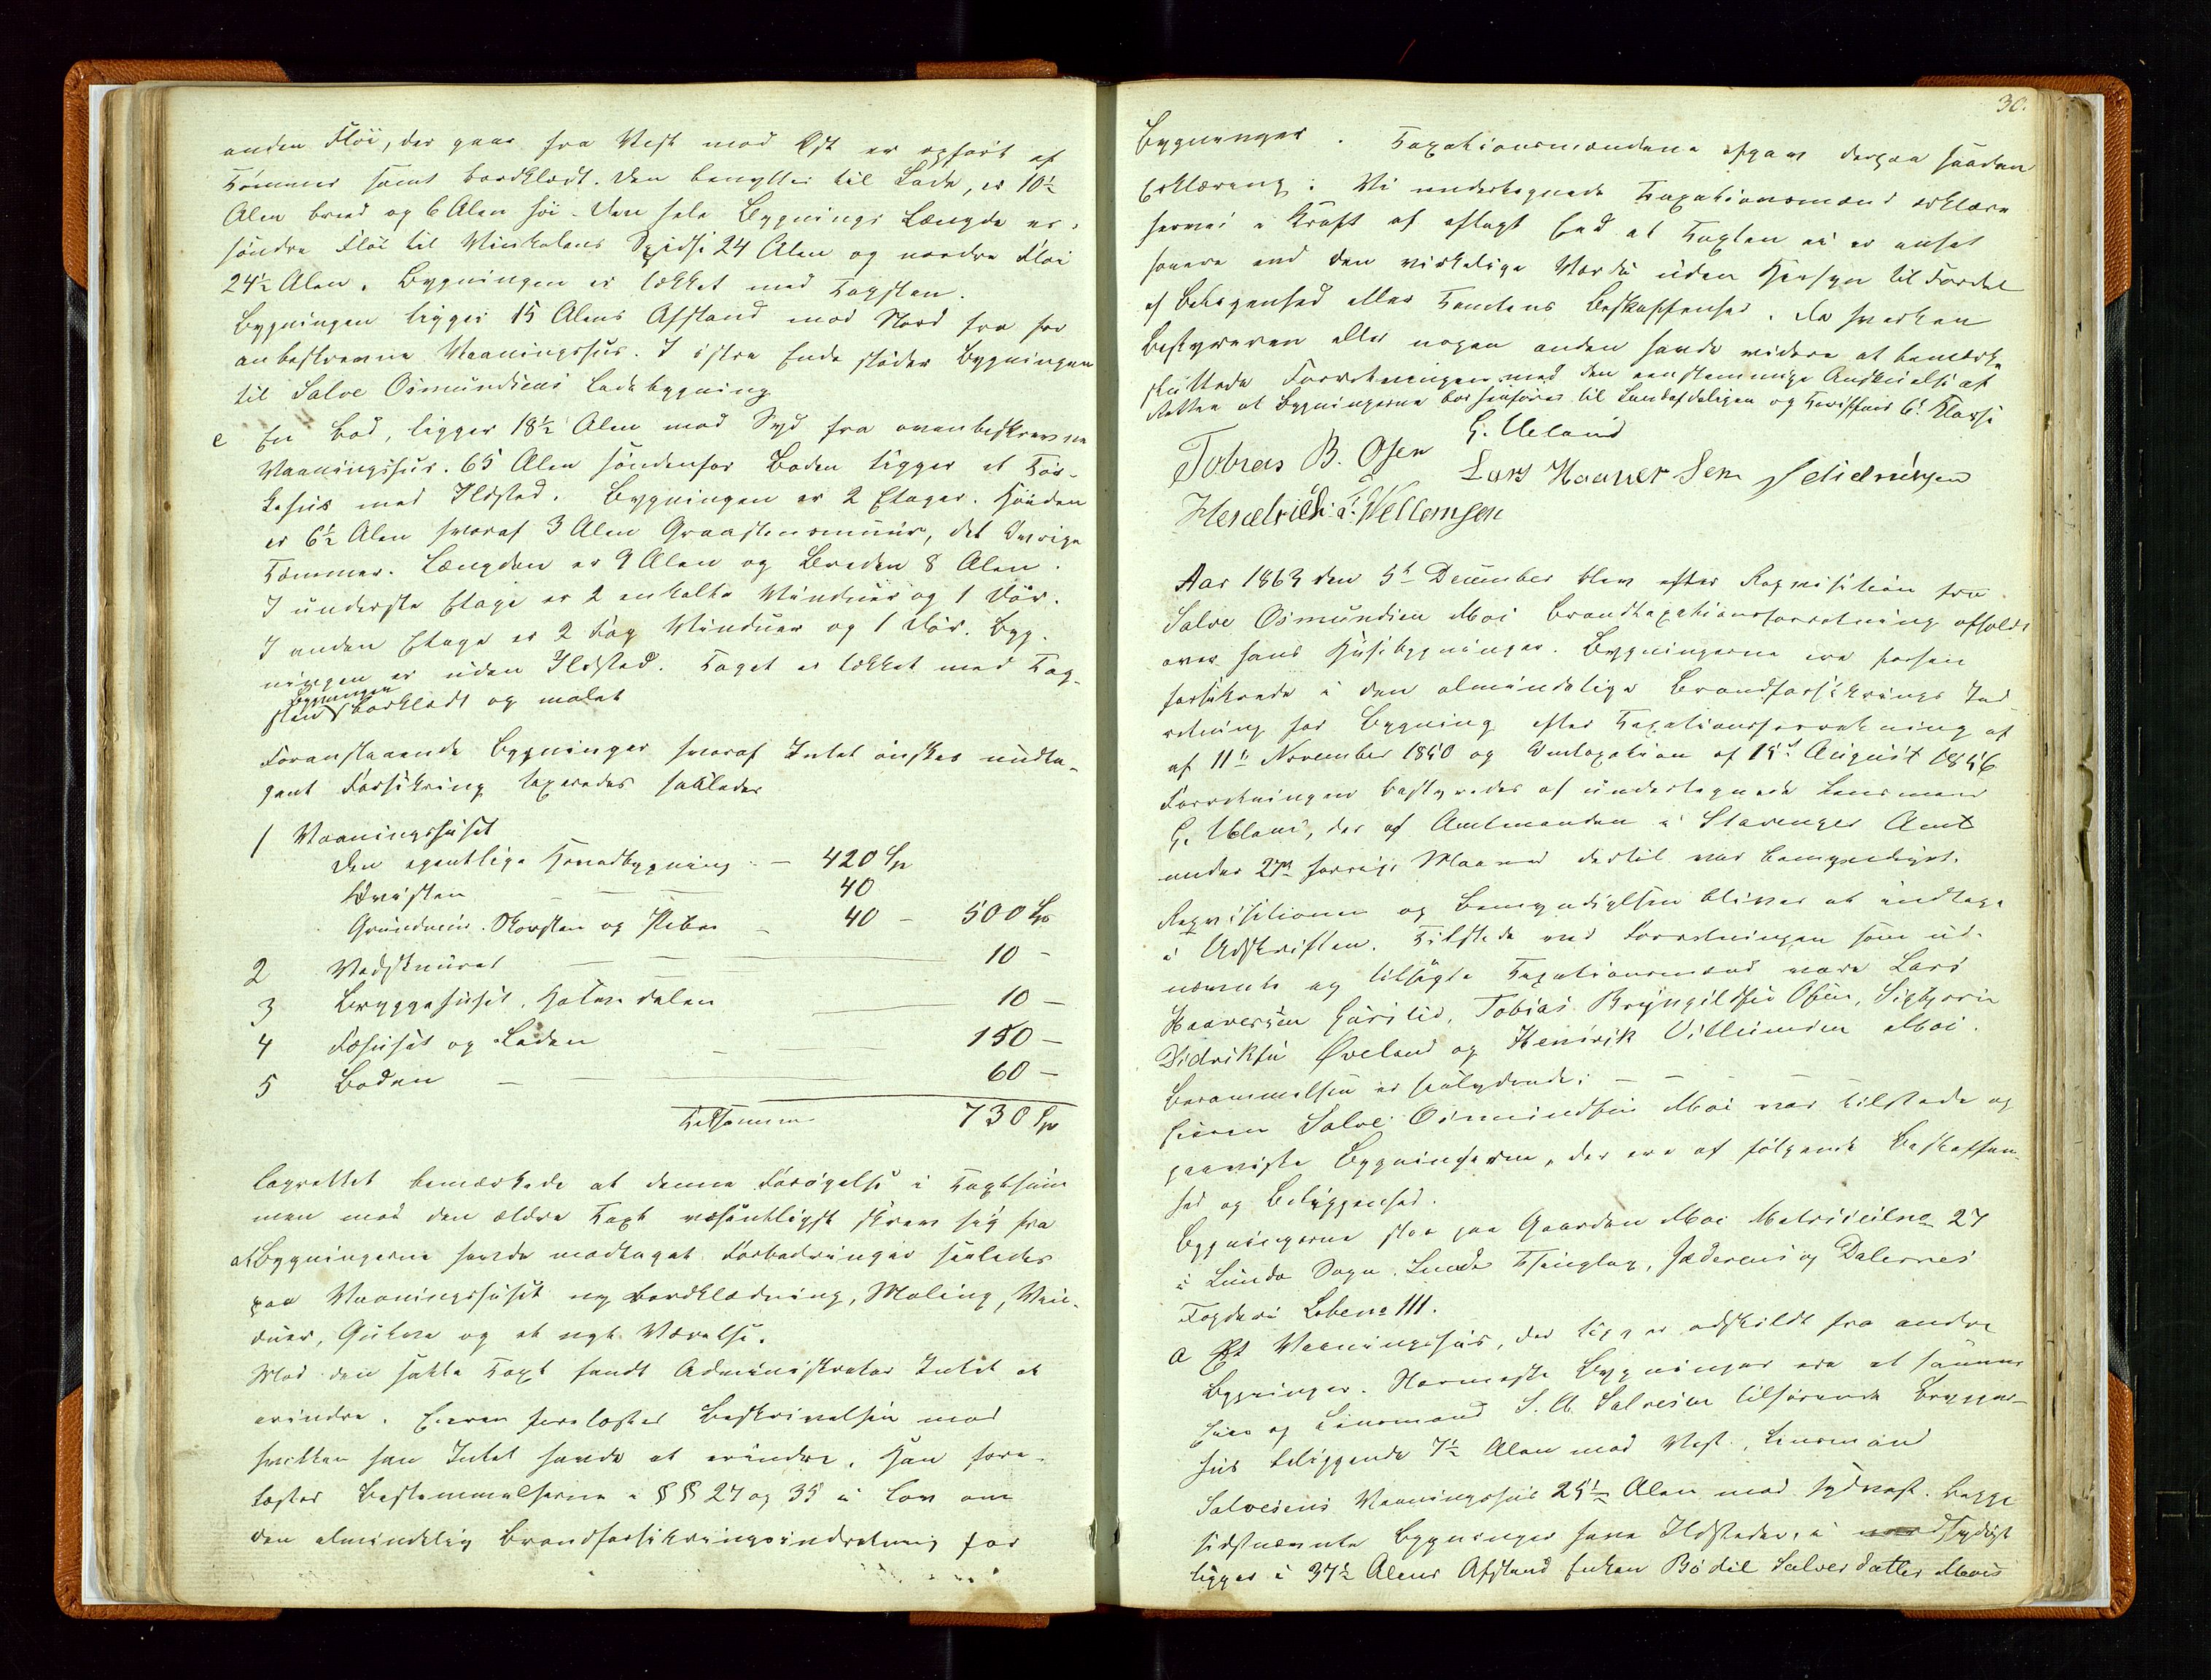 anden Fløi, der gaar fra Vest mod Øst er opført af
Tømmer samt bordklædt. Den benyttes til Lade, er 10½
Alen bred og 6 Alen høi. Den hele Bygnings Længde er,
søndre Fløi til Vinkelens Spidse 24 Alen og nordre Fløi
24½ Alen. Bygningen er tækket med Tagsten.
Bygningen ligger 15 Alens Afstand mod Nord fra for
anbeskrevne Vaaningshus. I østre Ende støder Bygningen
til Salve Osmundsens Ladebygning
e En Bod, ligger 18½ Alen mod Syd fra ovenbeskrevne
Vaaningshus. 65 Alen søndenfor Boden ligger et Tør-
kehus med Ildsted. Bygningen er 2 Etager. Høiden
er 6½ Alen hvoraf 3 Alen Graastensmuur, det Øvrige
Tømmer. Længden er 9 Alen og Breden 8 Alen.
I underste Etage er 2 enkelte Vinduer og 1 Dør.
I anden Etage er 2 Fag Vinduer og 1 Dør. Byg-
ningen er uden Ildsted. Taget er tækket med Tag-
sten Bygningen bordklædt og malet
Foranstaaende Bygninger hvoraf Intet ønskes undta-
gent Forsikring taxeredes saaledes
1 Vaaningshuset
Den egentlige Hovedbygning — 420 Sp
Qvisten — — 40
Grundmur. Skorsten og Piber — 40 — 500 Sp
2 Vedskuret — — 10 —
3 Bryggehuset, — 10 —
4 Fæhuset og Laden — 150 —
5 Boden — — 60 —
Tilsammen 730 Sp
Lagrettet bemærkede at denne Forøgelse i Taxtsum
men mod den ældre Taxt væsentligst skrev sig fra
at Bygningerne havde modtaget Forbedringer saaledes
paa Vaaningshuset ny Bordklædning, Maling, Vin-
duer, Gulve og et nyt Værelse.
Mod den satte Taxt fandt Administrator Intet at
erindre. Eieren forelæstes Beskrivelsen mod
hvilken han Intet havde at erindre. Han fore-
læstes Bestemmelserne i §§ 27 og 35 i Lov om
den almindelig Brandforsikringsindretning for
30.
Bygninger. Taxationsmændene afgav derpaa saadan
Erklæring: Vi undertegnede Taxationsmænd erklære
herved i Kraft af aflagt Eed at Taxten ei er ansat
høiere end den virkelige Værdi uden Hensyn til Fordel
af Beliggenhed eller Tomtens Beskaffenhed. Da hverken
Bestyreren eller nogen anden havde videre at bemærke
sluttede Forretningen med den eenstemmige Anskuelse af
Retten at Bygningerne bør henføres til Landafdeligen og Tariffens 6te Klasse
G. Ueland
Tobias B. Osen Lars Haaversen
Hendrich Wellomsen
Aar 1863 den 5te December blev efter Reqvisition fra
Salve Osmundsen Moi Brandtaxationsforretning afholdt
over hans Huusbygninger. Bygningerne ere forhen
forsikrede i den almindelige Brandforsikrings Ind-
retning for Bygning efter Taxationsforretning af
af 11te November 1850 og Omtaxation af 15de August 1856
Forretningen bestyredes af undertegnede Lensmand
G. Ueland, der af Amtmanden i Stavanger Amt
under 27de forrige Maaned dertil var bemyndiget.
Reqvisitionen og Bemyndigelsen bliver at indtage
i Udskriften. Tilstede ved Forretningen som ud-
nævnte og tilsagte Taxationsmænd vare Lars
Haaversen Eig, Tobias Bryngildsen Osen, Sigbjørn
Didriksen Øveland og Henrik Villumsen Moi.
Berammelsen er saalydende: — — —
Eieren Salve Osmundsen Moi var tilstede og
paaviste Bygningerne, der ere af følgende Beskaffen-
hed og Beliggenhed.
Bygningerne staa paa Gaarden Moi Matriculno 27
i Lunde Sogn, Lunde Thinglag, Jæderens og Dalernes
Fogderi Løbeno 111.
a Et Vaaningshus, der ligger adskildt fra andre
Bygninger. Nærmeste Bygninger ere et samme
Eier og Lensmand S. A. Salvesen tilhørende Brygger-
hus beliggende 7½ Alen mod Vest, Lensmand
Salvesens Vaaningshus 25½ Alen mod Sydvest. Begge
sidstnævnte Bygninger have Ildsteder, i Sydøst
ligger i 37½ Alens Afstand Enken Bodil Salvesdatter Mois